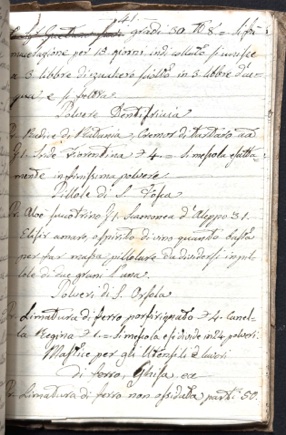 41.
gradi 30 ℔ 8. = si fà
macerazione per 15 giorni, indi colato si unisce
a 3 libbre di zucchero sciolto in 3 libbre d'ac-
qua, e si feltra
Polvere Dentifricia
Radice di Ratania, Cremor di tartaro aa
℥1. Iride Fiorentina 4. = si mescola esatta-
mente in finissima polvere
Pillole di S. Fosca
R Aloe succotrino ℥1. Scamonea d'Aleppo ʒ1.
Elisir amaro, o spirito di vino quanto basta
per far massa pillolare da dividersi in pil-
lole di due grani l'una.
Polveri di S. Orsola
R Limatura di ferro porfirizzato 4. Canel-
la Regina 1. = si mescola e si divide in 24 polveri.
Mastice per gli Utensili e lavori
di ferro, Ghisa ec
R Limatura di ferro non ossidata parti 50.